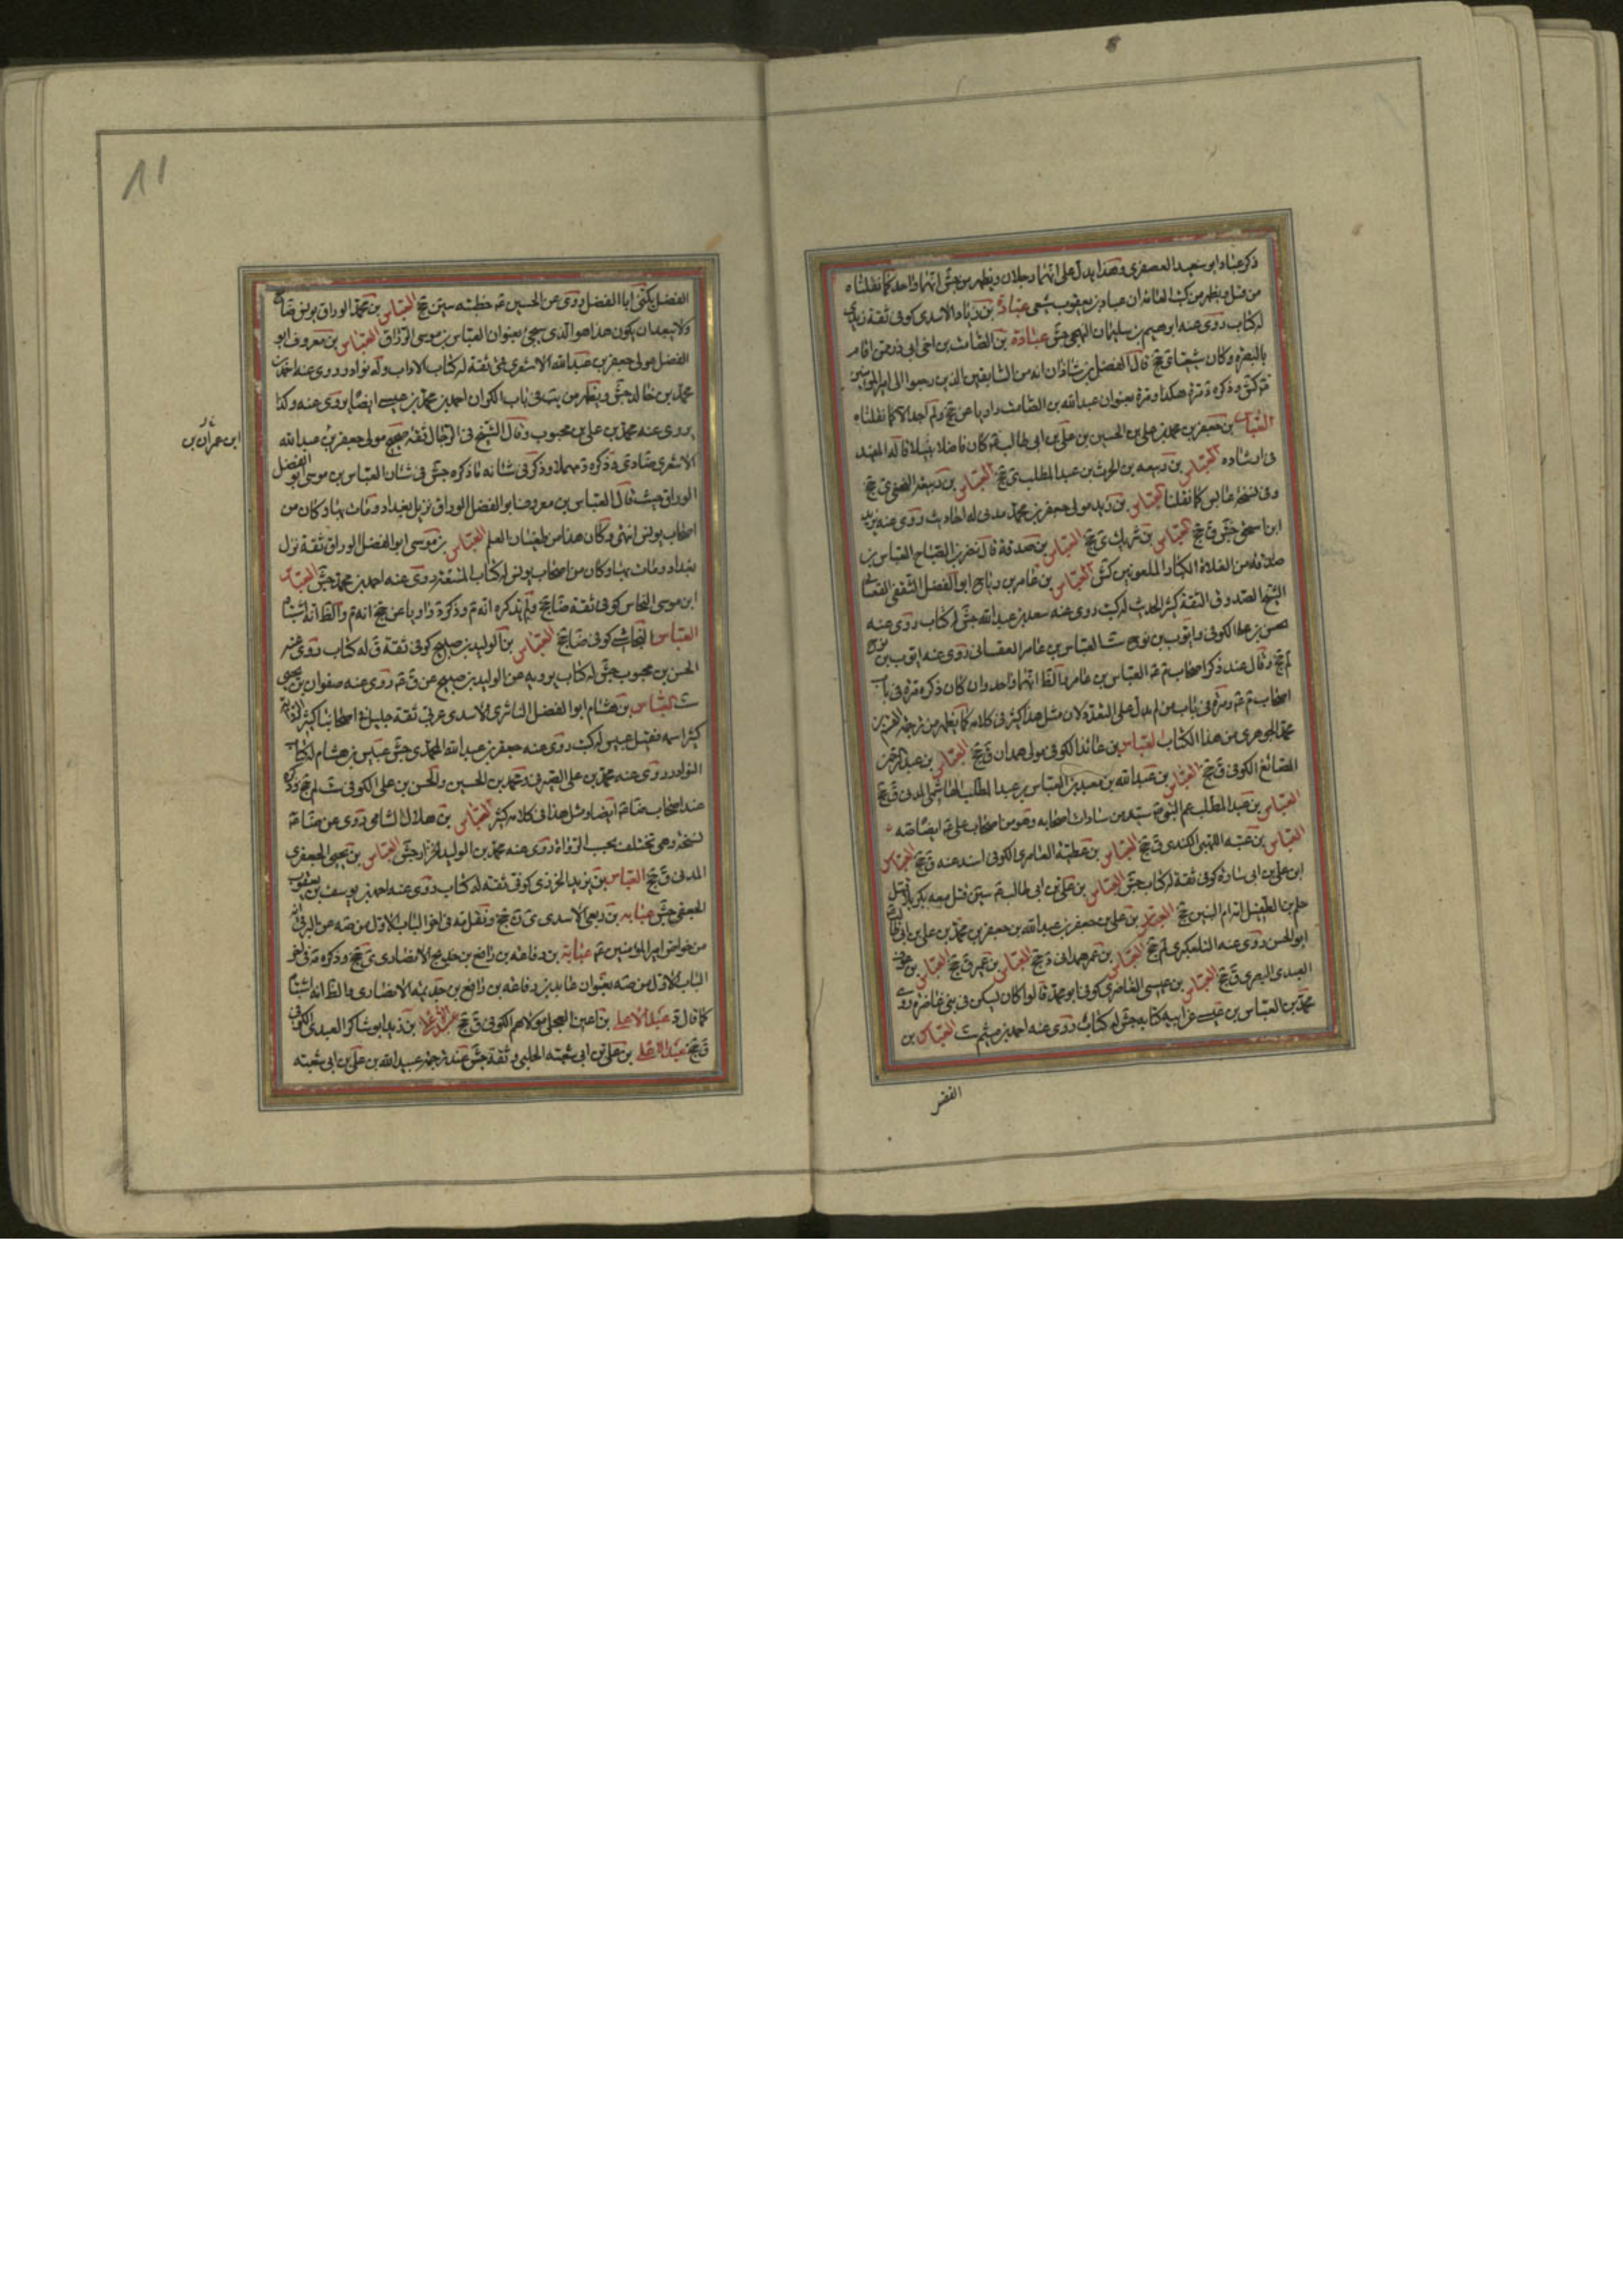 ذكر عباد ابو سعيد العصفرى وهذا يدل على انهما رجلان ويظهر من جش انهما واحد كما نقلناه
من قبل ويظهر من كتب العامة ان عباد بن يعقوب شيعى عبادة بن زياد الاسدى كوفى ثقة زيدى
له كتاب روى عنه ابرهيم بن سليمان النهمى جش عبادة بن الصامت بن اخى ابى ذر ممن اقام
بالبصرة وكان شيعيا ى جخ قال الفضل بن شاذان انه من السابقين الذين رجعوا الى امير المؤمنين
وذكره مرة هكذا ومرة بعنوان عبد الله بن الصامت راويا عن جخ ولم اجد الا كما نقلناه
العباس بن جعفر بن محمد بن على بن الحسين بن على بن ابى طالب كان فاضلا نبيلا قاله المفيد
فى ارشاده العباس بن ربيعه بن الحرث بن عبد المطلب ى جخ العباس بن ربيعة النخعى جخ
وفى نسخة عابس كما نقلنا العباس بن زيد مولى جعفر بن محمد مدنى له احاديث روى عنه يزيد
ابن اسحق جش ق جخ العباس بن شريك ى جخ العباس بن صدقة قال نصر بن الصباح العباس بن
صدقة من الغلاة الكبار الملعونين كش العباس بن عامر بن رباح ابو الفضل الثقفى القصبانى
الشيخ الصدوق الثقة كثير الحديث له كتب روى عنه سعد بن عبد الله جش له كتاب روى عنه
حسن بن على الكوفى وايوب بن نوح ست العباس بن عامر القصبانى روى عنه ايوب بن نوح
لم جخ وقال عند ذكر اصحاب م العباس بن عامر والظ انهما واحد وان كان ذكره مرة فى باب
اصحاب م ومرة فى باب من لم يدل على التعدد لان مثل هذا كثير فى كلامه كما يظهر من ترجمة القسم بن
محمد الجوهرى من هذا الكتاب العباس بن عائذ الكوفى مولى همدان ق جخ العباس بن عبد الرحمن
الصائغ الكوفى ق جخ العباس بن عبد الله بن معبد بن العباس بن عبد المطلب الهاشمى المدنى ق جخ
العباس بن عبد المطلب عم النبى سيد من سادات اصحابه وهو من اصحاب على ايضا
العباس بن عتبه اللهبى الكندى ق جخ العباس بن عطية العامرى الكوفى اسند عنه ق جخ العباس
ابن على بن ابى سارة كوفى ثقة له كتاب جش العباس بن على بن ابى طالب سين قتل معه بكربلا قتله
حكم بن الطفيل امه ام البنين جخ العباس بن على بن جعفر بن عبد الله بن جعفر بن محمد بن على بن ابى طالب
ابو الحسن روى عنه التلعكبرى لم جخ العباس بن عمر همدانى جخ العباس بن عمير ق جخ العباس بن عوف
العبدى البصرى ق جخ العباس بن عيسى الغاضرى كوفى ابو محمد قالوا كان يسكن فى بنى غاضرة روى
محمد بن العباس بن عيسى عن ابيه كتابه جش له كتاب روى عنه احمد بن ميثم ست العباس بن
الفضل
الفضل يكنى ابا الفضل روى عن الحسين خطبته سين جخ العباس بن محمد الوراق يونسى ضا جخ
ولا يبعد ان يكون هذا هو الذى سيجئ بعنوان العباس بن موسى الوراق العباس بن معروف ابو
الفضل مولى جعفر بن عبد الله الاشعرى قمى ثقة له كتاب الاداب وله نوادر روى عنه احمد بن
محمد بن خالد جش ويظهر من يب فى باب الكر ان احمد بن محمد بن عيسى ايضا يروى عنه وكذا
يروى عنه محمد بن على بن محبوب وقال الشيخ فى الرجال ثقة صحيح مولى جعفر بن عبد الله
ابن عمران بن
الاشعرى ضا وذكره مهملا وذكر فى شانه ما ذكره جش فى شان العباس بن موسى ابو الفضل
الوراق حيث قال العباس بن معروف ابو الفضل الوراق نزيل بغداد ومات بها وكان من
اصحاب يونس انتهى وكان هذا من طغيان القلم العباس بن موسى ابو الفضل الوراق ثقة نزل
بغداد ومات بها وكان من اصحاب يونس له كتاب المتعة روى عنه احمد بن محمد جش العباس
ابن موسى النخاس كوفى ثقة ضا جخ ولم يذكره وذكره راويا عن جخ انه م والظ انه اشتباه
العباس النجاشى كوفى ضا جخ العباس بن الوليد بن صبيح كوفى ثقة ق له كتاب روى عنه
الحسن بن محبوب جش له كتاب يرويه عن الوليد بن صبيح عن ق روى عنه صفوان بن يحيى
ست العباس بن هشام ابو الفضل الناشرى الاسدى عربى ثقة جليل فى اصحابنا كثير الرواية
كسر اسمه فقيل عبيس له كتب روى عنه جعفر بن عبد الله المحمدى جش عبيس بن هشام له كتاب
النوادر روى عنه محمد بن على الصيرفى ومحمد بن الحسين والحسن بن على الكوفى ست لم جخ وذكره
عند اصحاب ضا ايضا ومثل هذا فى كلامه كثير العباس بن هلال الشامى روى عن ضا
نسخة وهى تختلف بحسب الرواة روى عنه محمد بن الوليد الخزاز جش العباس بن يحيى الجعفرى
المدنى ق جخ العباس بن يزيد الخرزى كوفى ثقة له كتاب روى عنه احمد بن يوسف بن يعقوب
الجعفى جش عبايه بن ربعى الاسدى ى ن جخ ونقل فى اخر الباب الاول من صه عن البرقى انه
من خواص امير المؤمنين عباية بن رفاعه بن رافع بن خديج الانصارى ى جخ وذكره فى اخر
الباب الاول من صه بعنوان عابد بن رفاعه بن رافع بن خديجه الانصارى والظ انه اشتباه
كما قال د عبد الاعلى بن اعين العجلى مولاهم الكوفى ق جخ عبد الاعلى بن زيد ابو شاكر العبدى الكوفى
ق جخ عبد الاعلى بن على بن ابى شعبه الحلبى ثقة جش عند ترجمة عبيد الله بن على بن ابى شعبه